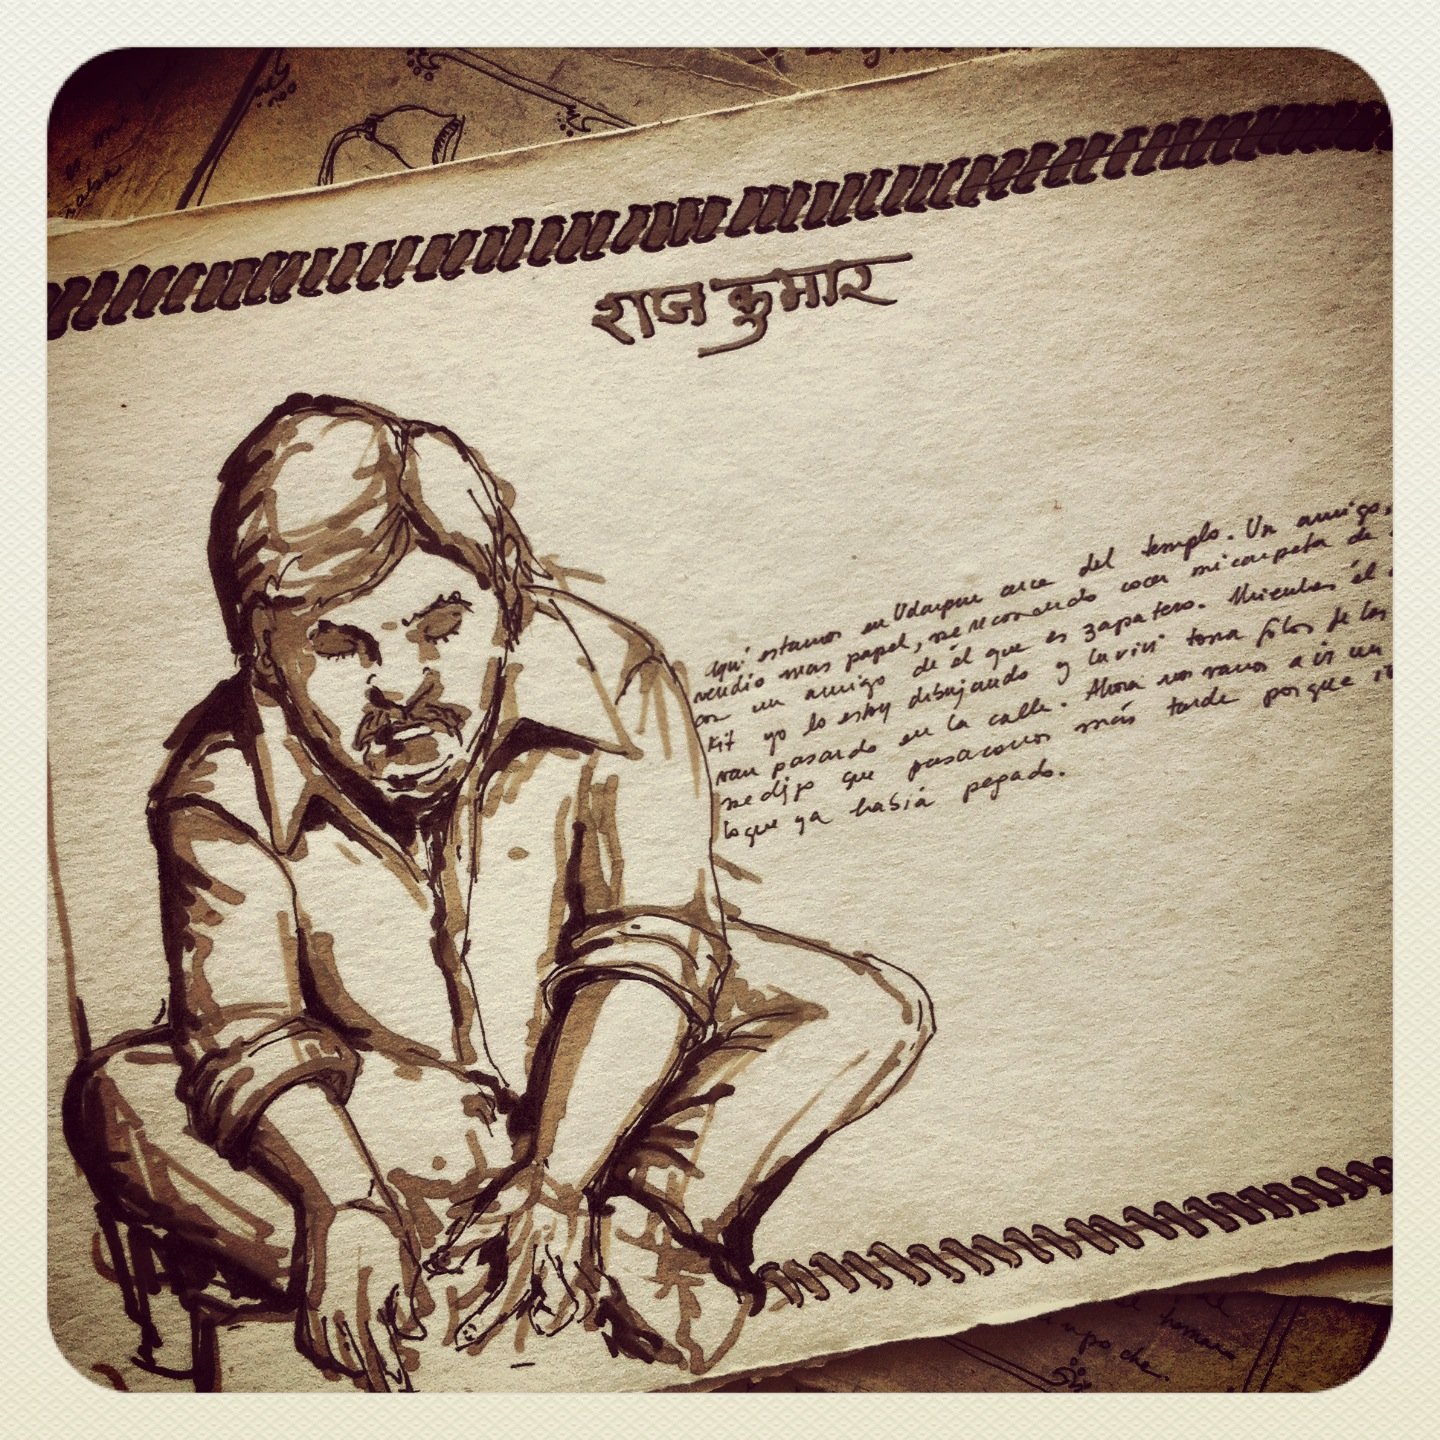 राजकुमार
Aquí estamos en Udaipur cerca del templo. Un amigo,
vendió mas papel, me recomendó coser mi carpeta de
con un amigo de él que es zapatero. Mientras él
Kit yo lo estoy dibujando y toma fotos de los
van pasando en la calle. Ahora nos vamos a ir un
me dijo que pasaramos más tarde porque
lo que ya había pegado.